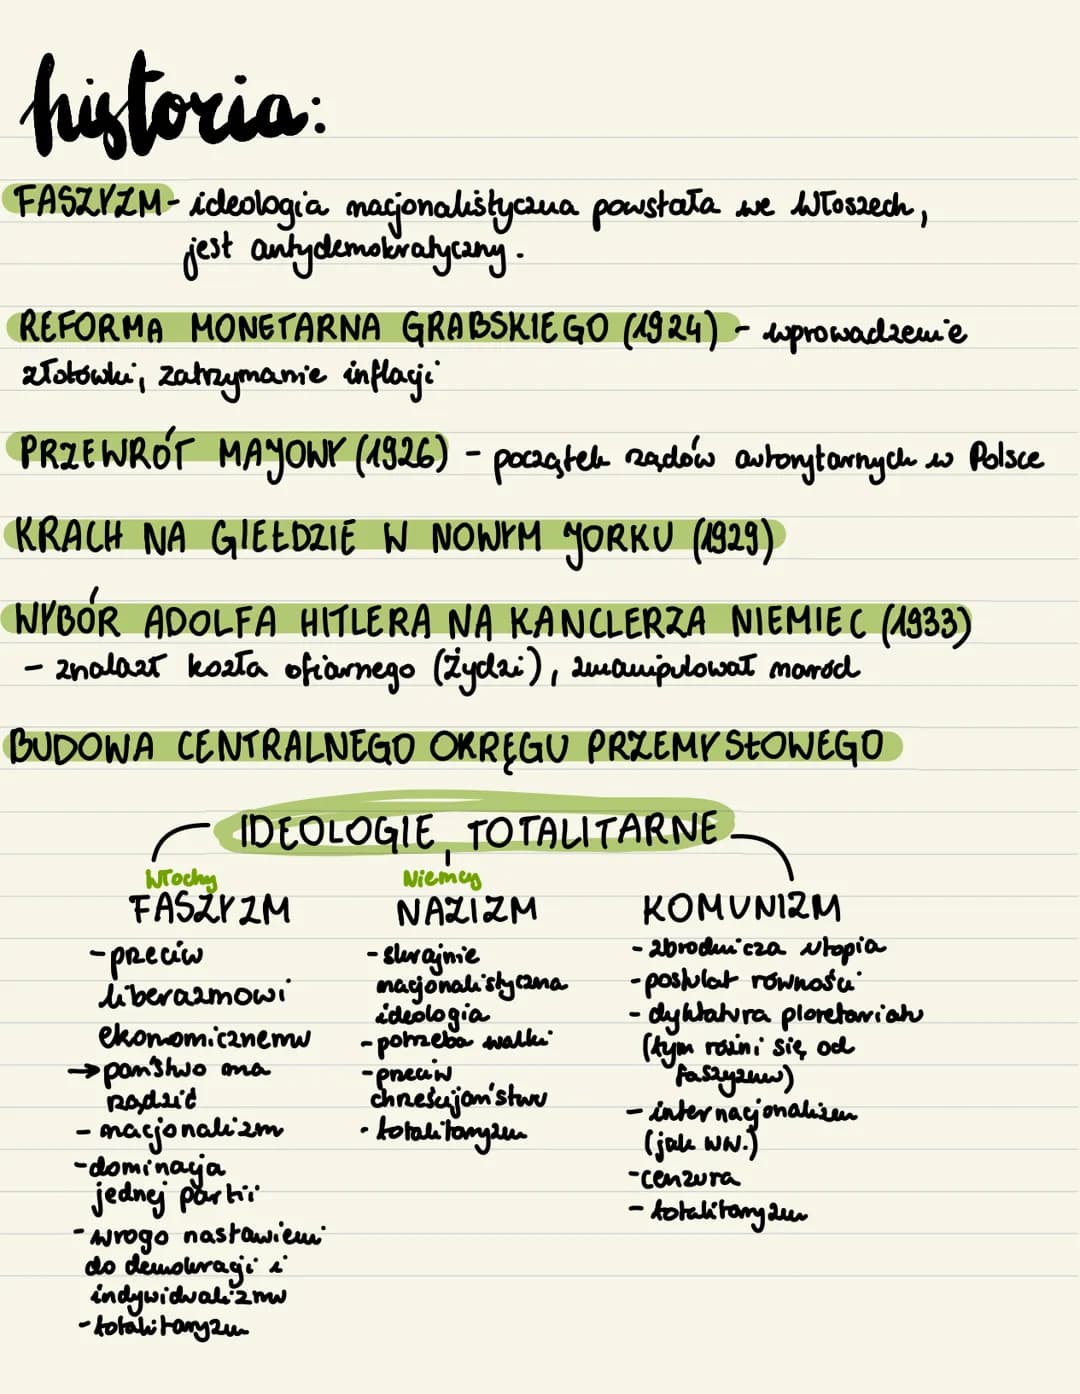 historia:
FASZYZM- ideologia nacjonalistyczna powstała we Włoszech,
jest antydemokratyczny.
REFORMA MONETARNA GRABSKIEGO (1924) - wprowadzenie
złotówki, zatrzymanie inflacji
PRZEWRÓT MAJOWY (1926) - początek rządów autorytarnych w Polsce
KRACH NA GIEŁDZIE W NOWYM JORKU (1929)
WYBÓR ADOLFA HITLERA NA KANCLERZA NIEMIEC (1933)
- znalazł kozła ofiarnego (Żydzi), zmanipulował naród
BUDOWA CENTRALNEGO OKRĘGU PRZEMYSŁOWEGO
IDEOLOGIE TOTALITARNE
Włochy
FASZYZM
- przeciw
liberazmowi
ekonomicznemu
→ państwo ma
rządzić
- nacjonalizm
- dominacja
jednej partii
- wrogo nastawieni
do demokracji i
indywidualizmu
- totalitaryzm
Niemcy
NAZIZM
- skrajnie
nacjonalistyczna
ideologia
- potrzeba walki
- przeciw
chrześcijaństwu
- totalitaryzm
KOMUNIZM
- zbrodnicza utopia
- postulat równości
- dyktatura ploretariatu
(tym różni się od
faszyzmu)
- internacjonalizm
(jak WW.)
- cenzura
- totalitaryzm